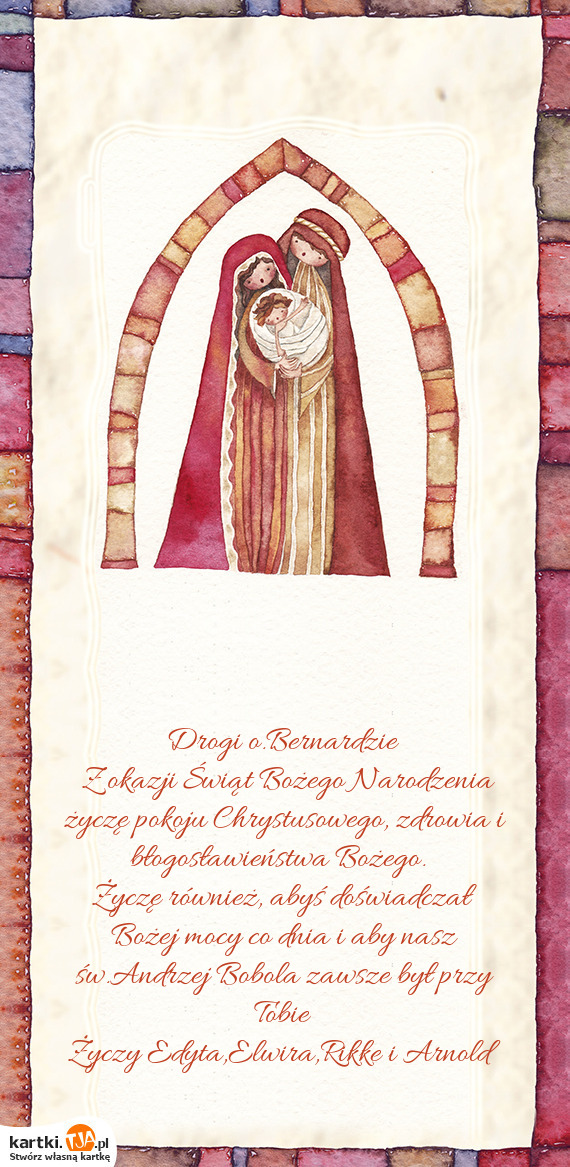 Drogi o.Bernardzie
Z okazji Świąt Bożego Narodzenia
życzę pokoju Chrystusowego, zdrowia i
błogosławieństwa Bożego.
Życzę również, abyś doświadczał
Bożej mocy co dnia i aby nasz
św.Andrzej Bobola zawsze był przy
Tobie
Życzy Edyta,Elwira,Rikke i Arnold
kartki.TJA.pl
Stwórz własną kartkę